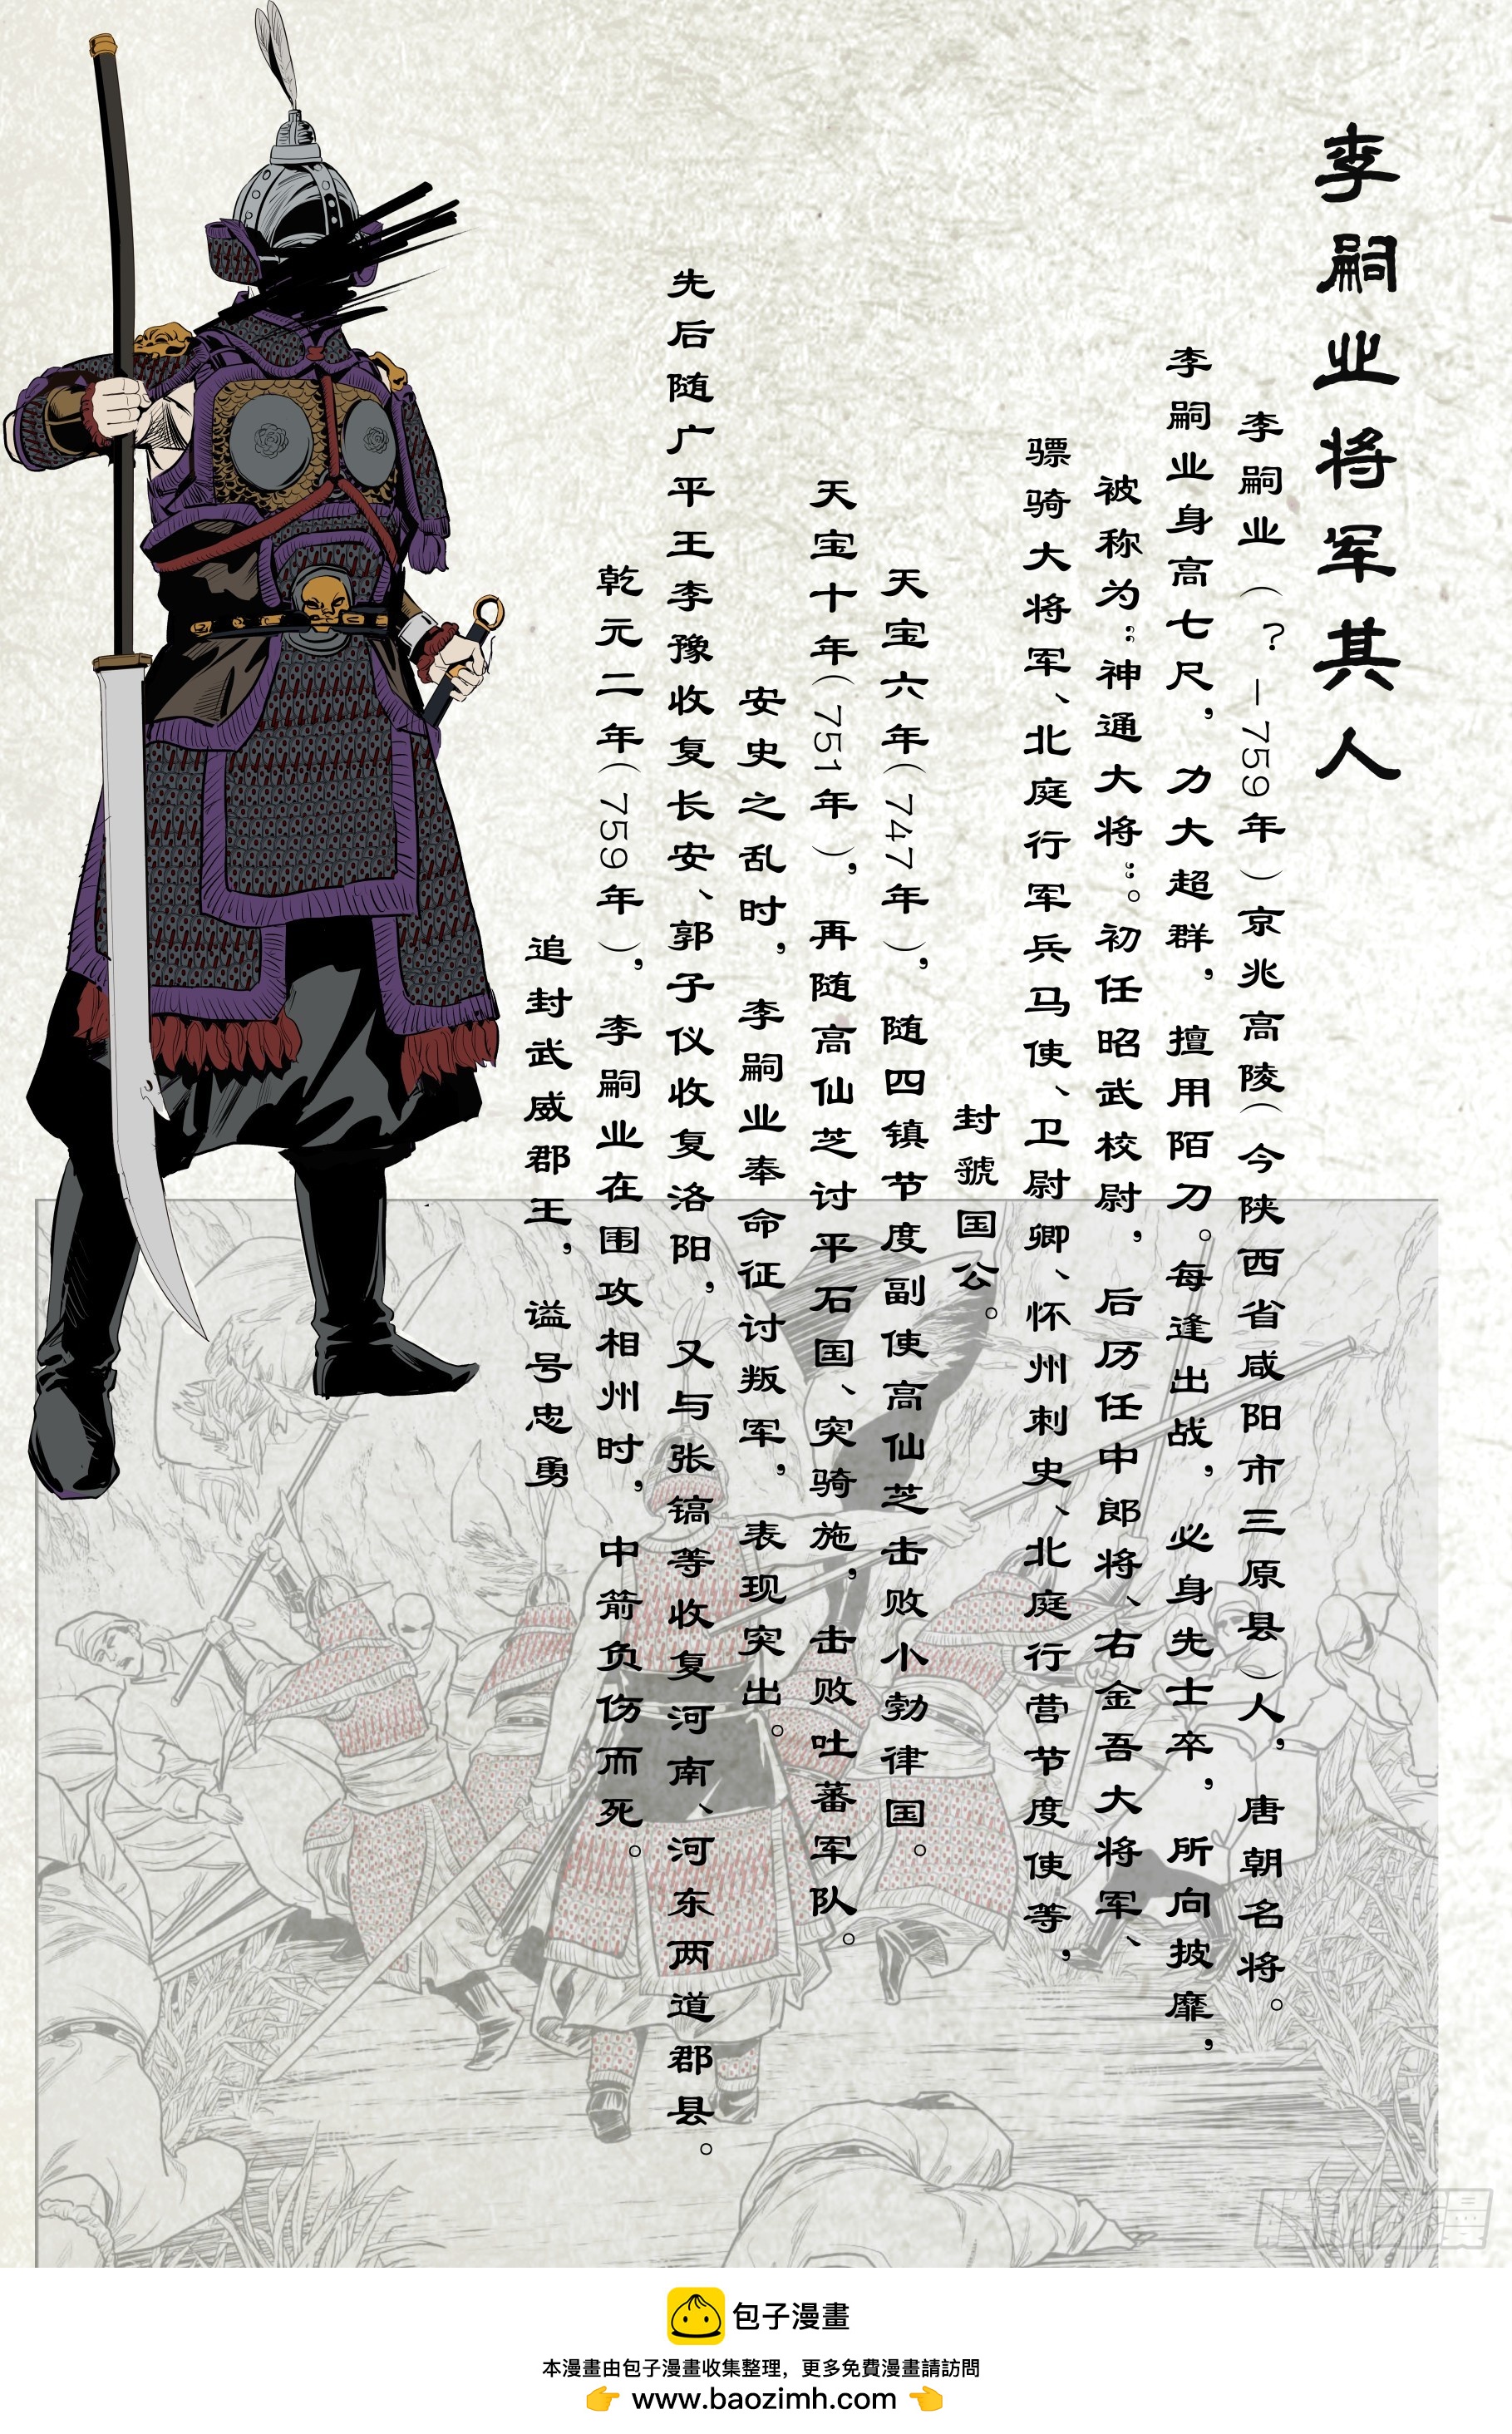 李嗣业将军其人
李嗣业（？—759年）京兆高陵（今陕西省咸阳市三原县）人，唐朝名将。
李嗣业身高七尺，力大超群，擅用陌刀。每逢出战，必身先士卒，所向披靡，
被称为“神通大将”。初任昭武校尉，后历任中郎将、右金吾大将军、
骠骑大将军、北庭行军兵马使、卫尉卿、怀州刺史、北庭行营节度使等，
封虢国公。
天宝六年（747年），随四镇节度副使高仙芝击败小勃律国。
天宝十年（751年），再随高仙芝讨平石国、突骑施，击败吐蕃军队。
安史之乱时，李嗣业奉命征讨叛军，表现突出。
先后随广平王李豫收复长安、郭子仪收复洛阳，又与张镐等收复河南、河东两道郡县。
乾元二年（759年），李嗣业在围攻相州时，中箭负伤而死。
追封武威郡王，谥号忠勇
包子漫畫
本漫畫由包子漫畫收集整理，更多免費漫畫請訪問
👉 www.baozimh.com 👈